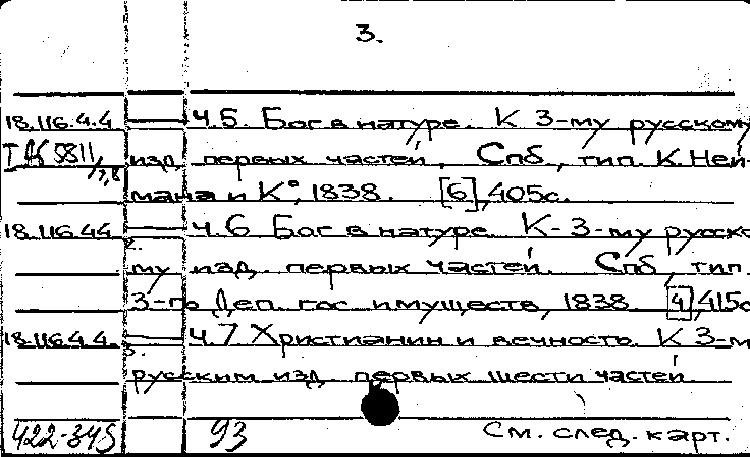 3.
18.116.4.4 — Ч.5. Бог в натуре. К 3-му русскому
изд. первых частей. Спб., тип. К. Ней-
7,8
мана и К°, 1838. [6], 405с.
18.116.4.4 — Ч.6 Бог в натуре. К-3-му русско-
2.
му изд. первых частей. Спб, тип.
3-го Деп. гос имуществ, 1838 [4], 415с
18.116.4.4. — Ч.7 Христианин и вечность. К 3-м
3.
русским изд первых шести частей.
422-345 93 См. след. карт.